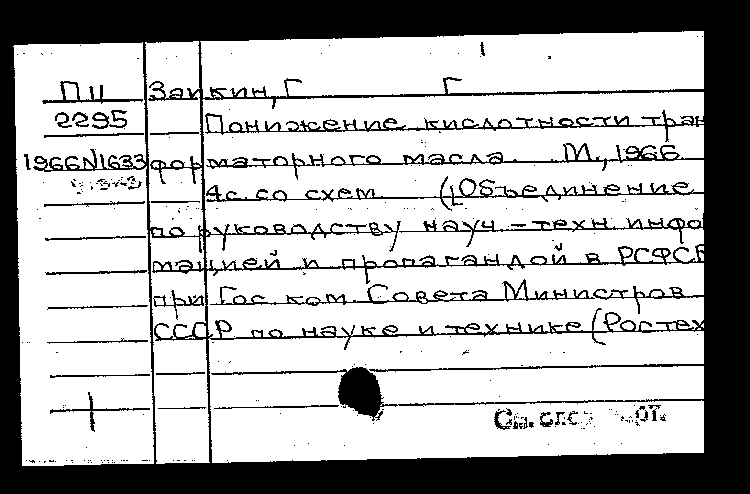 ПII Заикин, Г Г
2295 Понижение кислотности тран
1966N1633 форматорного масла. М., 1966
4с. со схем. ([Объединение
по руководству науч-техн. инфо
мацией и пропагандой в РСФСР
при Гос. ком. Совета Министров
СССР по науке и технике (Ростех
См. след. от.